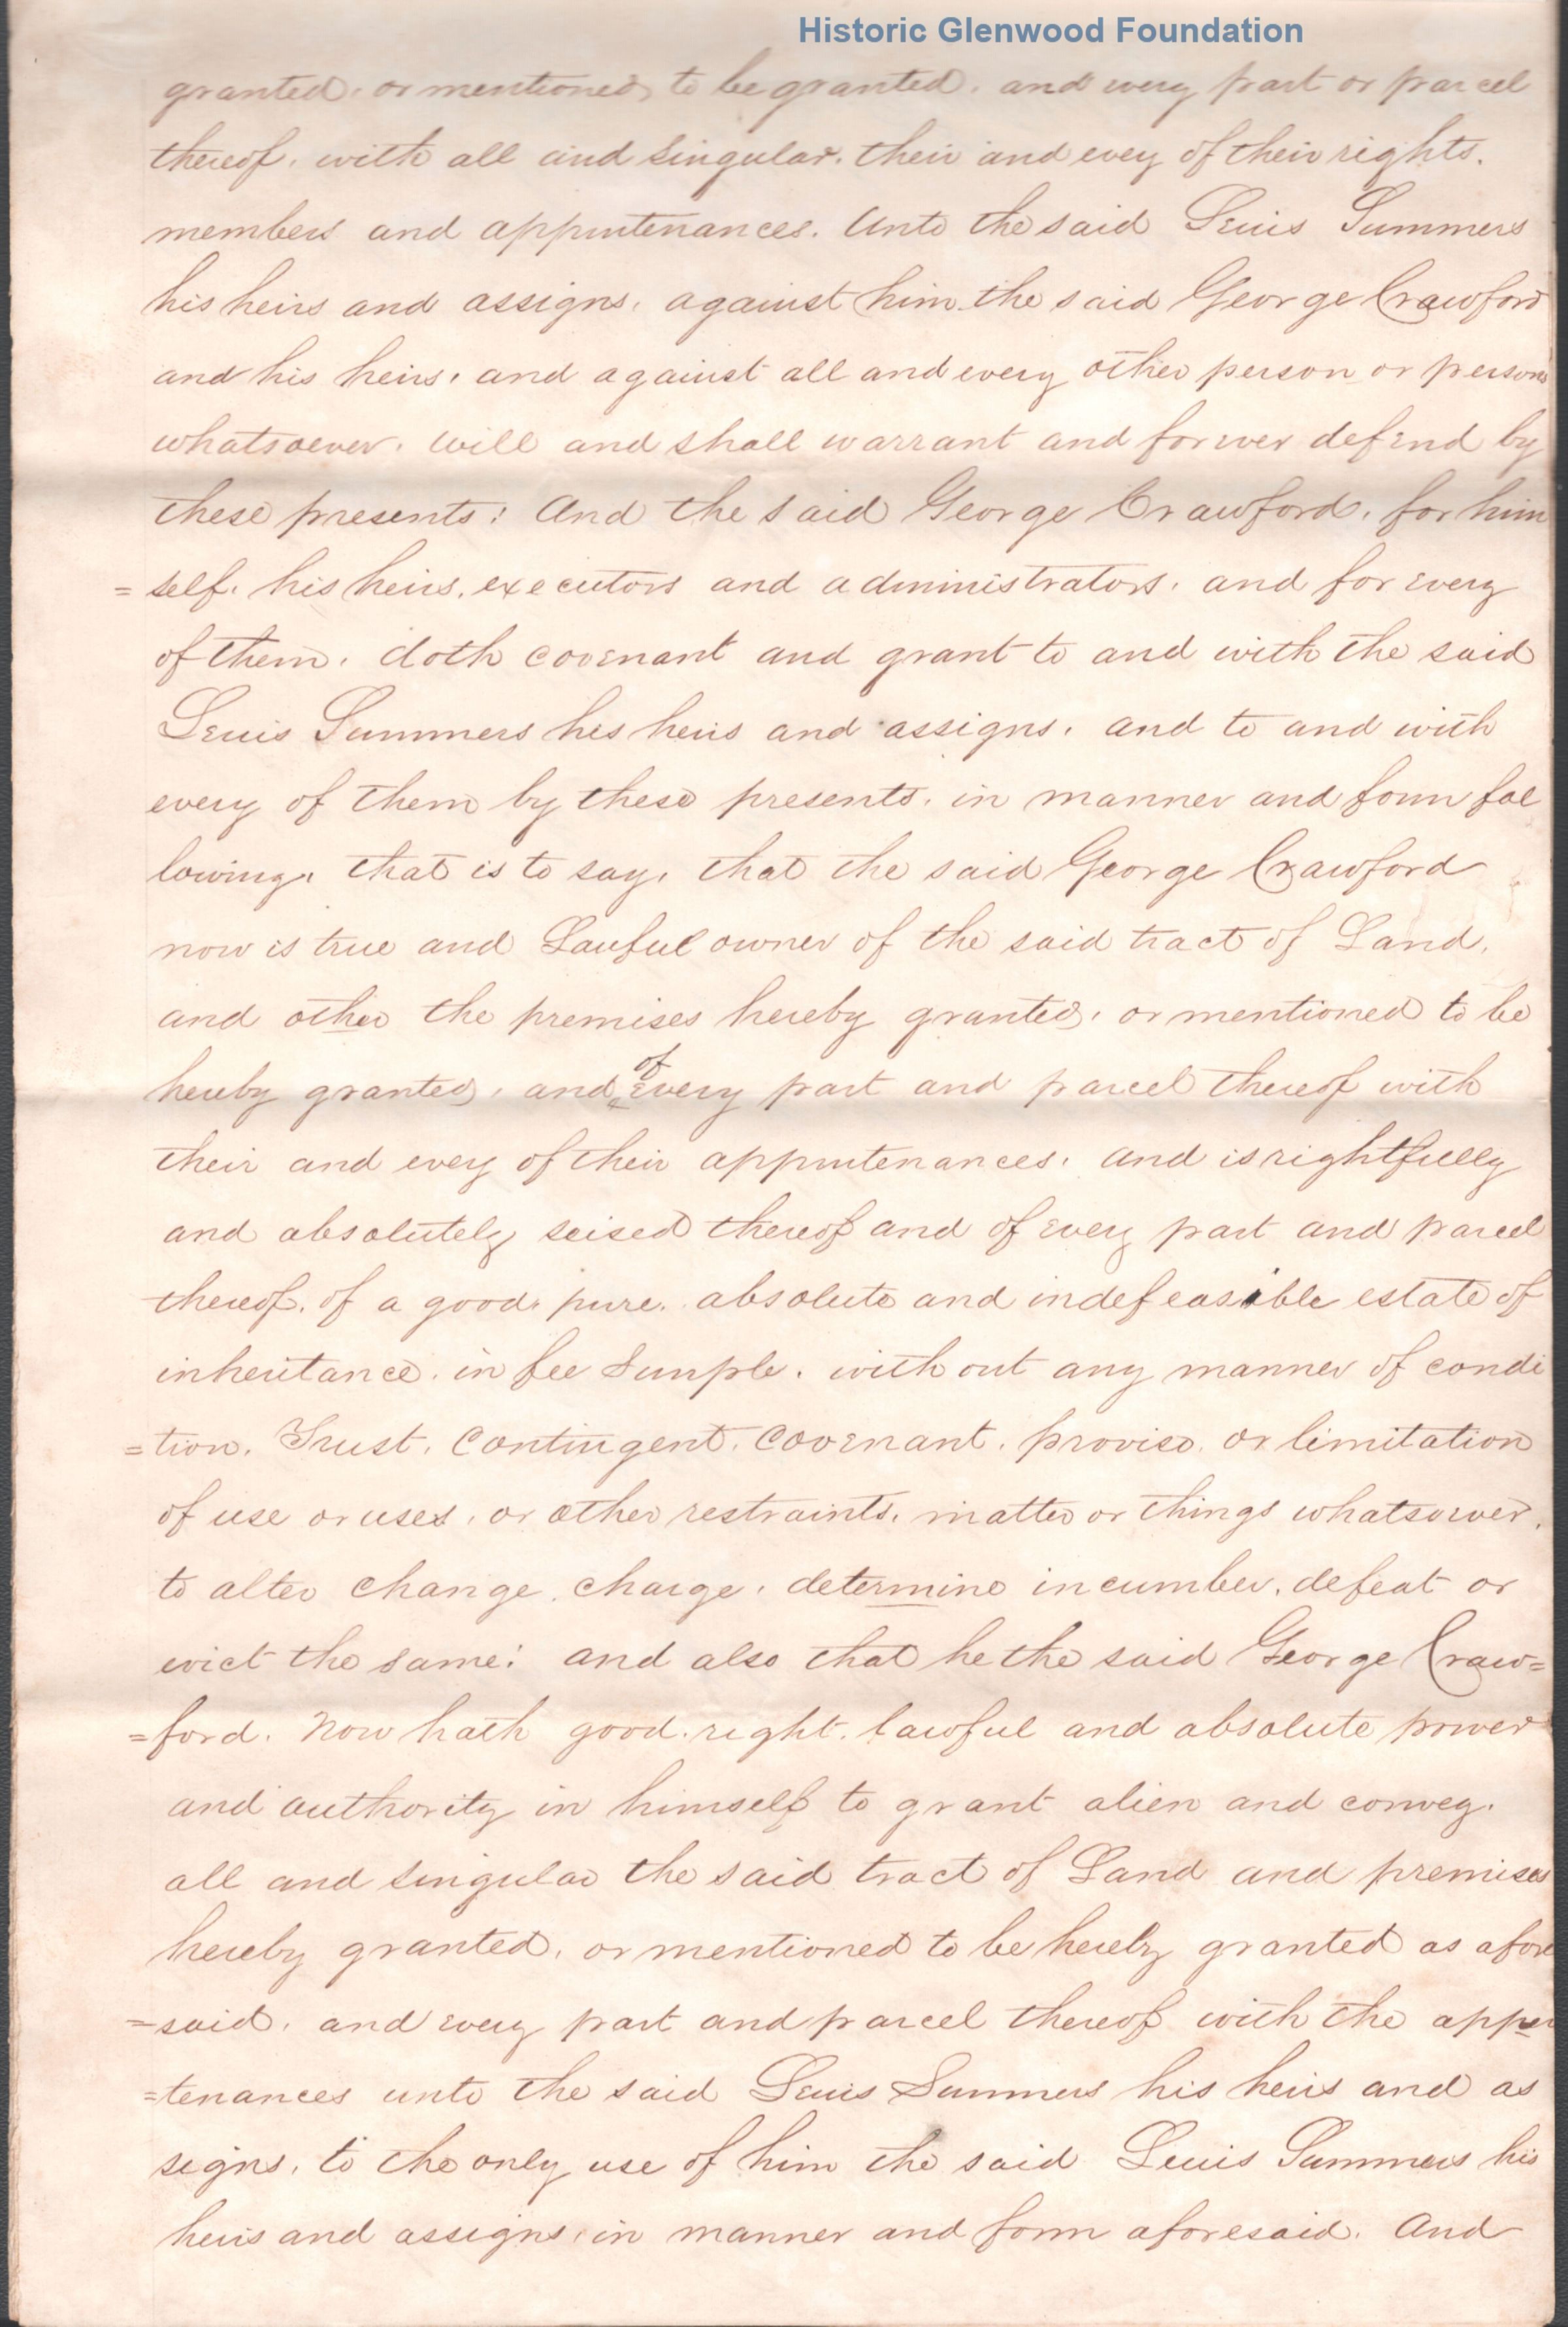 Historic Glenwood Foundation
granted, or mentioned, to be granted, and every part or parcel
thereof, with all and singular, their and every of their rights,
members and appurtenances, Unto the said Lewis Summers
his heirs and assigns, against him the said George Crawford
and his heirs, and against all and every other person or persons
whatsoever, will and shall warrant and forever defend by
these presents: And the said George Crawford, for him
=self, his heirs, executors and administrators, and for every
of them, doth covenant and grant to and with the said
Lewis Summers his heirs and assigns, and to and with
every of them by these presents, in manner and form fol
lowing, that is to say, that the said George Crawford
now is true and Lawful owner of the said tract of Land,
and other the premises hereby granted, or mentioned to be
hereby granted, and of every part and parcel thereof with
their and every of their appurtenances, and is rightfully
and absolutely seised thereof and of every part and parcel
thereof, of a good, pure, absolute and indefeasible estate of
inheritance, in fee Simple, without any manner of condi
=tion, Trust, Contingent, Covenant, proviso, or limitation
of use or uses, or other restraints, matter or things whatsoever,
to alter change, charge, determine incumber, defeat or
evict the same: and also that he the said George Craw=
=ford, Now hath good, right, lawful and absolute power
and authority in himself to grant alien and convey,
all and singular the said tract of Land and premises
hereby granted, or mentioned to be hereby granted as afore
=said, and every part and parcel thereof with the apper
=tenances unto the said Lewis Summers his heirs and as
signs, to the only use of him the said Lewis Summers his
heirs and assigns, in manner and form aforesaid. And